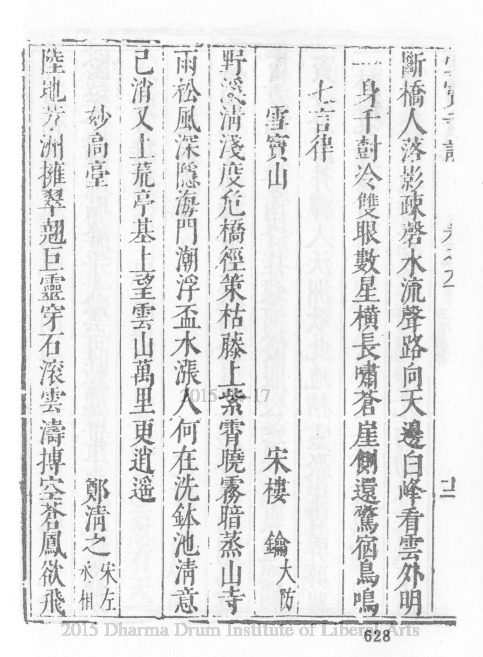 斷橋人落影疎磬水流聲路向天邊白峰看雲外明
一身千對冷雙眼數星橫長嘯蒼崖側還驚宿鳥鳴
七言律
雪竇山 宋樓 鑰大防
野溪清淺度危橋徑策枯藤上紫霄曉霧暗蒸山寺
雨松風深隱海門潮浮盃水漲人何在洗鉢池清意
已消又上荒亭基上望雲山萬里更逍遥
妙高臺 鄭清之宋左丞相
陸地芥洲擁翠翹巨靈穿石滾雲濤摶空蒼鳳欲飛
2015-03-17
628
2015 Dharma Drum Institute of Liberal Arts